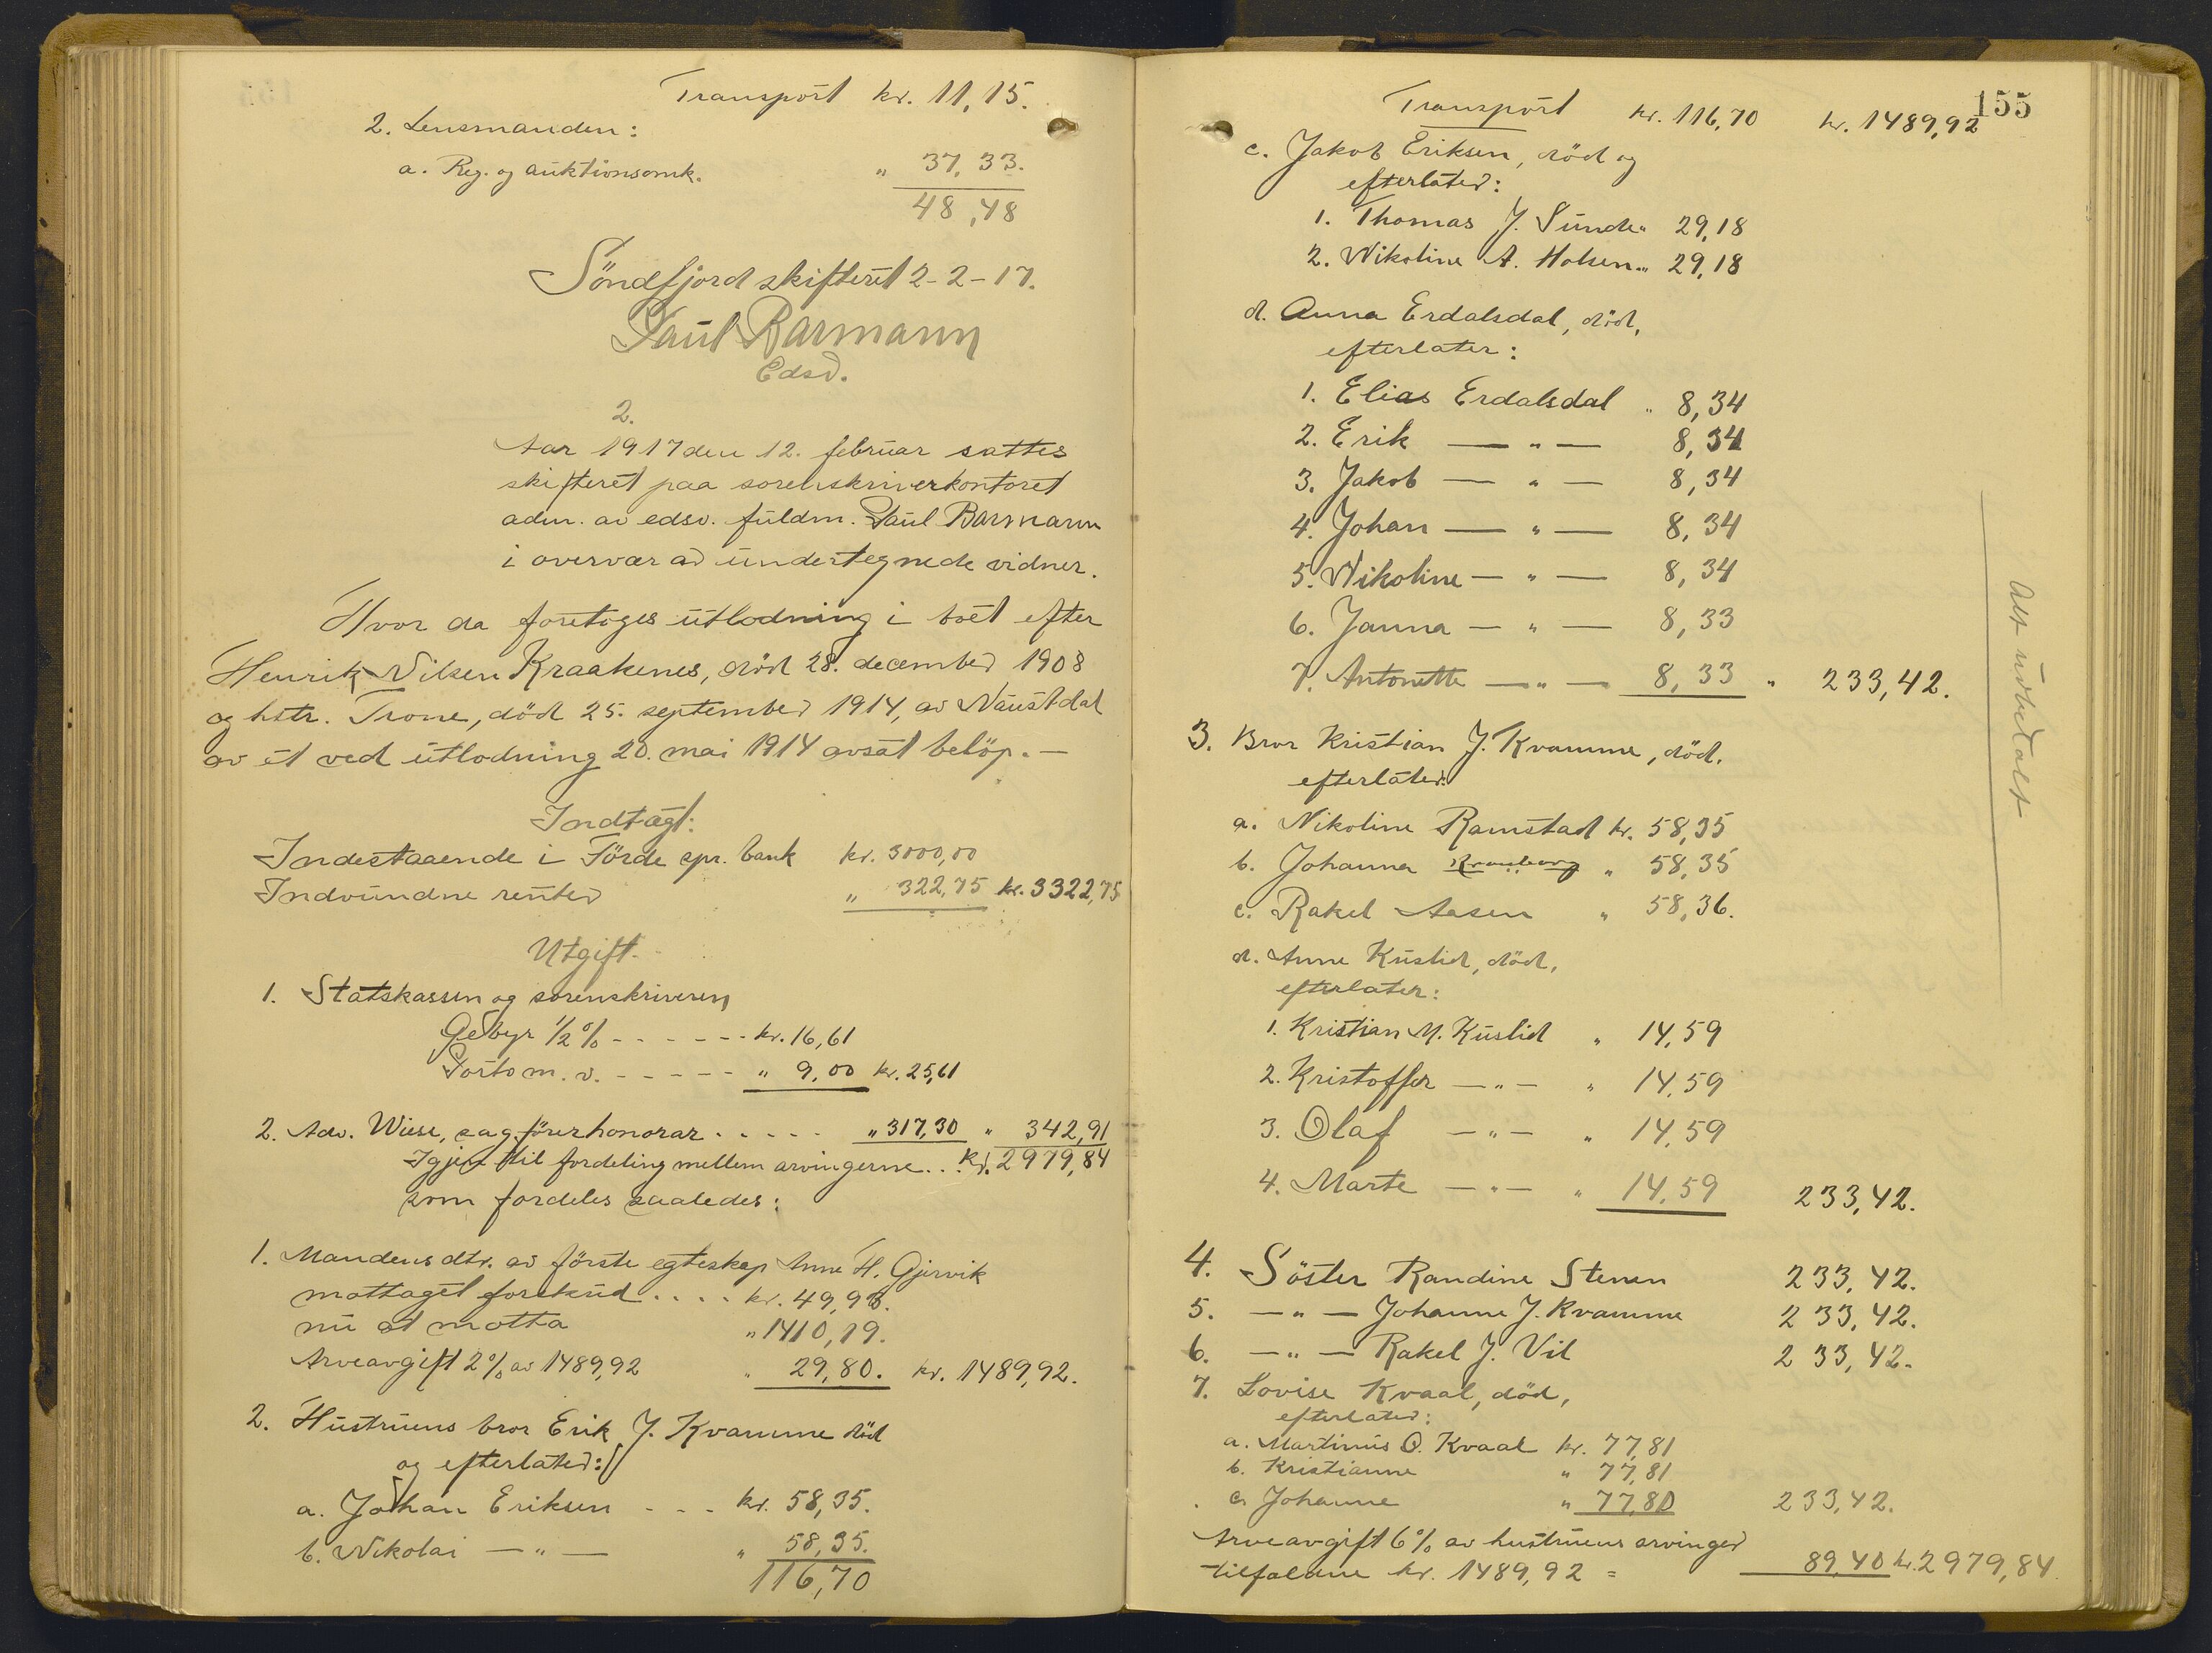 Transport kr. 11,15.
2. Lensmanden:
a. Reg. og auktionsomk. " 37,33.
48,48
Söndfjord skifteret 2-2-17.
Paul Barmann
Edsv.
2.
Aar 1917 den 12. februar sattes
skifteret paa sorenskriverkontoret
adm. av edsv. fuldm. Paul Barmann
i overvær av undertegnede vidner.
Hvor da foretoges utlodning i boet efter
Henrik Nilsen Kraakenes, död 28. december 1908
og hstr. Trone, död 25. september 1914, av Naustdal
av et ved utlodning 20. mai 1914 avsat belöp. —
Indtægt:
Indestaaende i Förde spr. bank kr. 3000,00
Indvundne renter " 322,75 kr. 3322,75
Utgift.
1. Statskassen og sorenskriveren
Gebyr 1/2 % - - - - - - kr. 16,61
Porto m. v. - - - - - " 9,00 kr. 25,61
2. Adv. Wiese, sagförerhonorar . . . . . " 317,30 " 342,91
Igjen til fordeling mellem arvingerne . . . Kr. 2979,84
som fordeles saaledes:
1. Mandens dtr. av förste egteskap Anne H. Gjervik
mottaget forskud . . . . kr. 49,93.
nu at motta " 1410,19.
Arveavgift 2 % av 1489,92 " 29,80. kr. 1489,92.
2. Hustruens bror Erik J. Kvamme död
og efterlater:
a. Johan Eriksen - - - kr. 58,35.
b. Nikolai — " — " 58,35.
116,70
155
Transport kr. 116,70 kr. 1489,92
c. Jakob Eriksen, död og
efterlater:
1. Thomas J. Sunde " 29,18
2. Nikoline A. Holsen " 29,18
d. Anna Erdalsdal, död,
efterlater:
1. Elias Erdalsdal " 8,34
2. Erik — " — 8,34
3. Jakob — " — 8,34
4. Johan — " — 8,34
5. Nikoline — " — 8,34
6. Janna — " — 8,33
7. Antonette — " — 8,33 " 233,42.
3. Bror Kristian J. Kvamme, död.
efterlater:
a. Nikoline Ramstad kr. 58,35
b. Johanna " 58,35
c. Rakel Aasen " 58,36.
d. Anne Kuslid, död,
efterlater:
1. Kristian M. Kuslid " 14,59
2. Kristoffer — " — " 14,59
3. Olaf — " — " 14,59
4. Marte — " — " 14,59 233,42.
4. Söster Randine Stenen 233,42.
5. — " — Johanne J. Kvamme 233,42.
6. — " — Rakel J. Vil 233,42.
7. Lovise Kvaal, död,
efterlater:
a. Martinus O. Kvaal kr. 77,81
b. Kristianne " 77,81
c. Johanne " 77,80 233,42.
Arveavgift 6 % av hustruens arvinger
tilfaldne kr. 1489,92 = 89,40 kr. 2979,84
Alt utbetalt